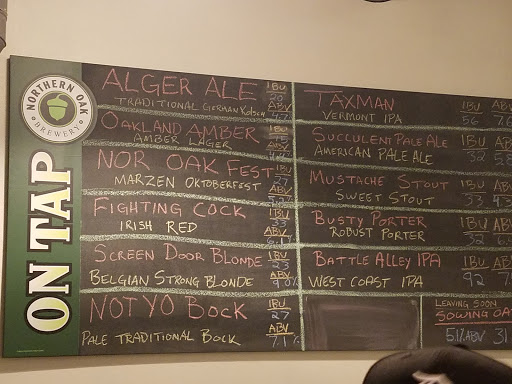 NORTHERN OAK
BREWERY
ON TAP
ALGER ALE IBU
20
TRADITIONAL GERMAN Kölsch ABV
4.7%
OAKLAND AMBER IBU
AMBER LAGER ABV
NOR OAK FEST IBU
27
MARZEN OKTOBERFEST ABV
FIGHTING COCK IBU
33
IRISH RED ABV
6.1%
SCREEN DOOR BLONDE IBU
23
BELGIAN STRONG BLONDE ABV
9.0%
NOTYO BOCK IBU
27
PALE TRADITIONAL BOCK ABV
7.1%
TAXMAN IBU ABV
VERMONT IPA 56
SUCCULENT PALE ALE IBU ABV
AMERICAN PALE ALE 32 5.8
MUSTACHE STOUT IBU ABV
SWEET STOUT 33
BUSTY PORTER IBU ABV
ROBUST PORTER 32
BATTLE ALLEY IPA IBU ABV
WEST COAST IPA 92
LEAVING SOON
SOWING OA
5.1% ABV 31